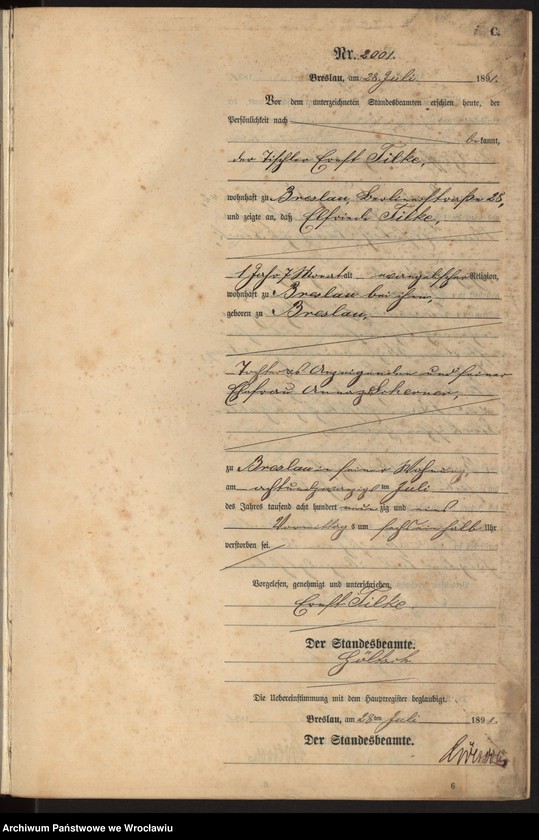 C.
Nr. 2001.
Breslau, am 28 Juli 1891.
Vor dem unterzeichneten Standesbeamten erschien heute, der
Persönlichkeit nach
bekannt,
der Tischler Ernst Tilke,
wohnhaft zu Breslau, Berlinerstraße 28,
und zeigte an, daß Elfriede Tilke,
1 Jahr 7 Monat alt evangelischer Religion,
wohnhaft zu Breslau bei ihm,
geboren zu Breslau,
Tochter des Anzeigenden und seiner
Ehefrau Anna Scherner,
zu Breslau in seiner Wohnung,
am achtundzwanzigsten Juli
des Jahres tausend acht hundert neunzig und eins
Vormittags um sechseinhalb Uhr
verstorben sei.
Vorgelesen, genehmigt und unterschrieben,
Ernst Tilke
Der Standesbeamte.
Die Uebereinstimmung mit dem Hauptregister beglaubigt.
Breslau, am 28ten Juli 1891.
Der Standesbeamte.
6
Archiwum Państwowe we Wrocławiu